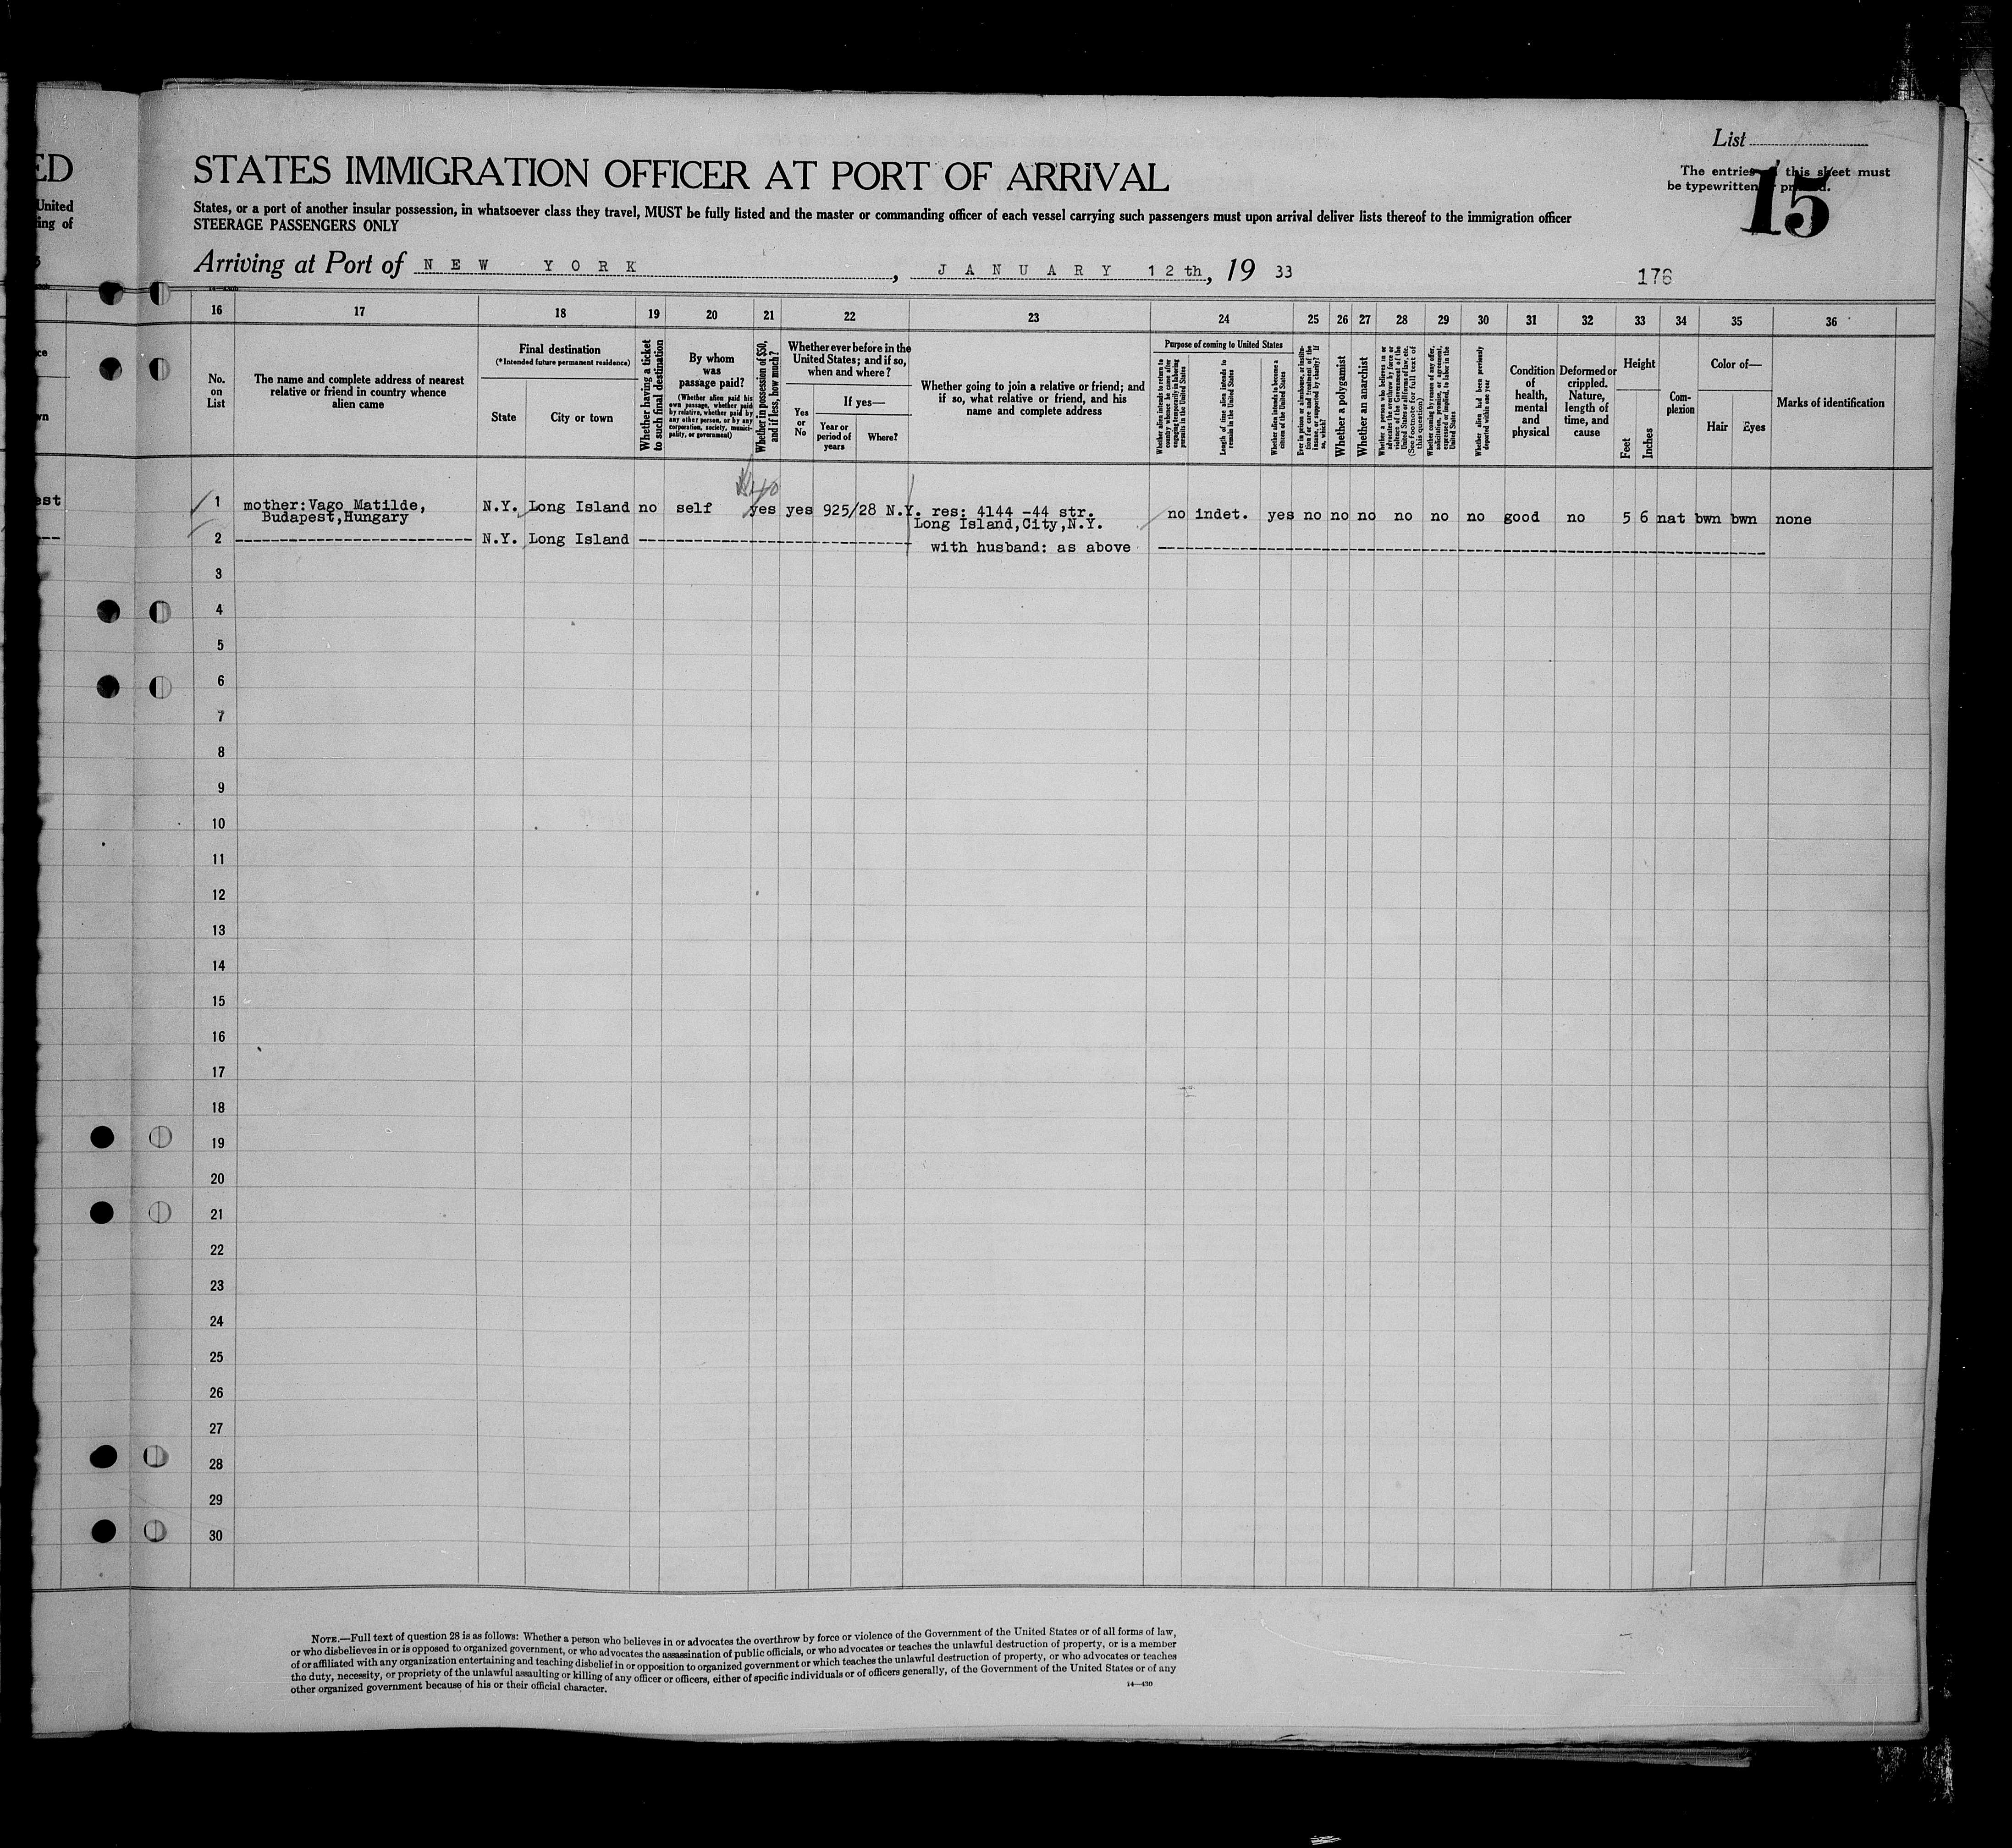 ED
United
ing of
List
The entries this sheet must
be typewritten
15
STATES IMMIGRATION OFFICER AT PORT OF ARRIVAL
States, or a port of another insular possession, in whatsoever class they travel, MUST be fully listed and the master or commanding officer of each vessel carrying such passengers must upon arrival deliver lists thereof to the immigration officer
STEERAGE PASSENGERS ONLY
Arriving at Port of NEW YORK, JANUARY 12th, 19 33
176
16 17 18 19 20 21 22 23 24 25 26 27 28 29 30 31 32 33 34 35 36
No. on List
The name and complete address of nearest relative or friend in country whence alien came
Final destination
(*Intended future permanent residence)
State
City or town
Whether having a ticket to such final destination
By whom was passage paid?
(Whether alien paid his own passage, whether paid by relative, whether paid by any other person, or by any corporation, society, municipality, or government)
Whether in possession of $50, and if less, how much?
Whether ever before in the United States; and if so, when and where?
Yes or No
If yes—
Year or period of years
Where?
Whether going to join a relative or friend; and if so, what relative or friend, and his name and complete address
Purpose of coming to United States
Whether alien intends to return to country whence he came after engaging temporarily in laboring pursuits in the United States
Length of time alien intends to remain in the United States
Whether alien intends to become a citizen of the United States
Ever in prison or almshouse, or institution for care and treatment of the insane, or supported by charity? If so, which?
Whether a polygamist
Whether an anarchist
Whether a person who believes in or advocates the overthrow by force or violence of the Government of the United States or all forms of law, etc. (See footnote for full text of this question)
Whether coming by reason of any offer, solicitation, promise, or agreement, expressed or implied, to labor in the United States
Whether alien had been previously deported within one year
Condition of health, mental and physical
Deformed or crippled. Nature, length of time, and cause
Height
Feet
Inches
Complexion
Color of—
Hair
Eyes
Marks of identification
est
1 mother:Vago Matilde, N.Y. Long Island no self yes yes 925/28 N.Y. res: 4144 -44 str. no indet. yes no no no no no no good no 5 6 nat bwn bwn none
Budapest,Hungary Long Island,City,N.Y.
2 N.Y. Long Island with husband: as above
3
4
5
6
7
8
9
10
11
12
13
14
15
16
17
18
19
20
21
22
23
24
25
26
27
28
29
30
NOTE.—Full text of question 28 is as follows: Whether a person who believes in or advocates the overthrow by force or violence of the Government of the United States or of all forms of law,
or who disbelieves in or is opposed to organized government, or who advocates the assassination of public officials, or who advocates or teaches the unlawful destruction of property, or is a member
of or affiliated with any organization entertaining and teaching disbelief in or opposition to organized government or which teaches the unlawful destruction of property, or who advocates or teaches
the duty, necessity, or propriety of the unlawful assaulting or killing of any officer or officers, either of specific individuals or of officers generally, of the Government of the United States or of any
other organized government because of his or their official character.
14—430